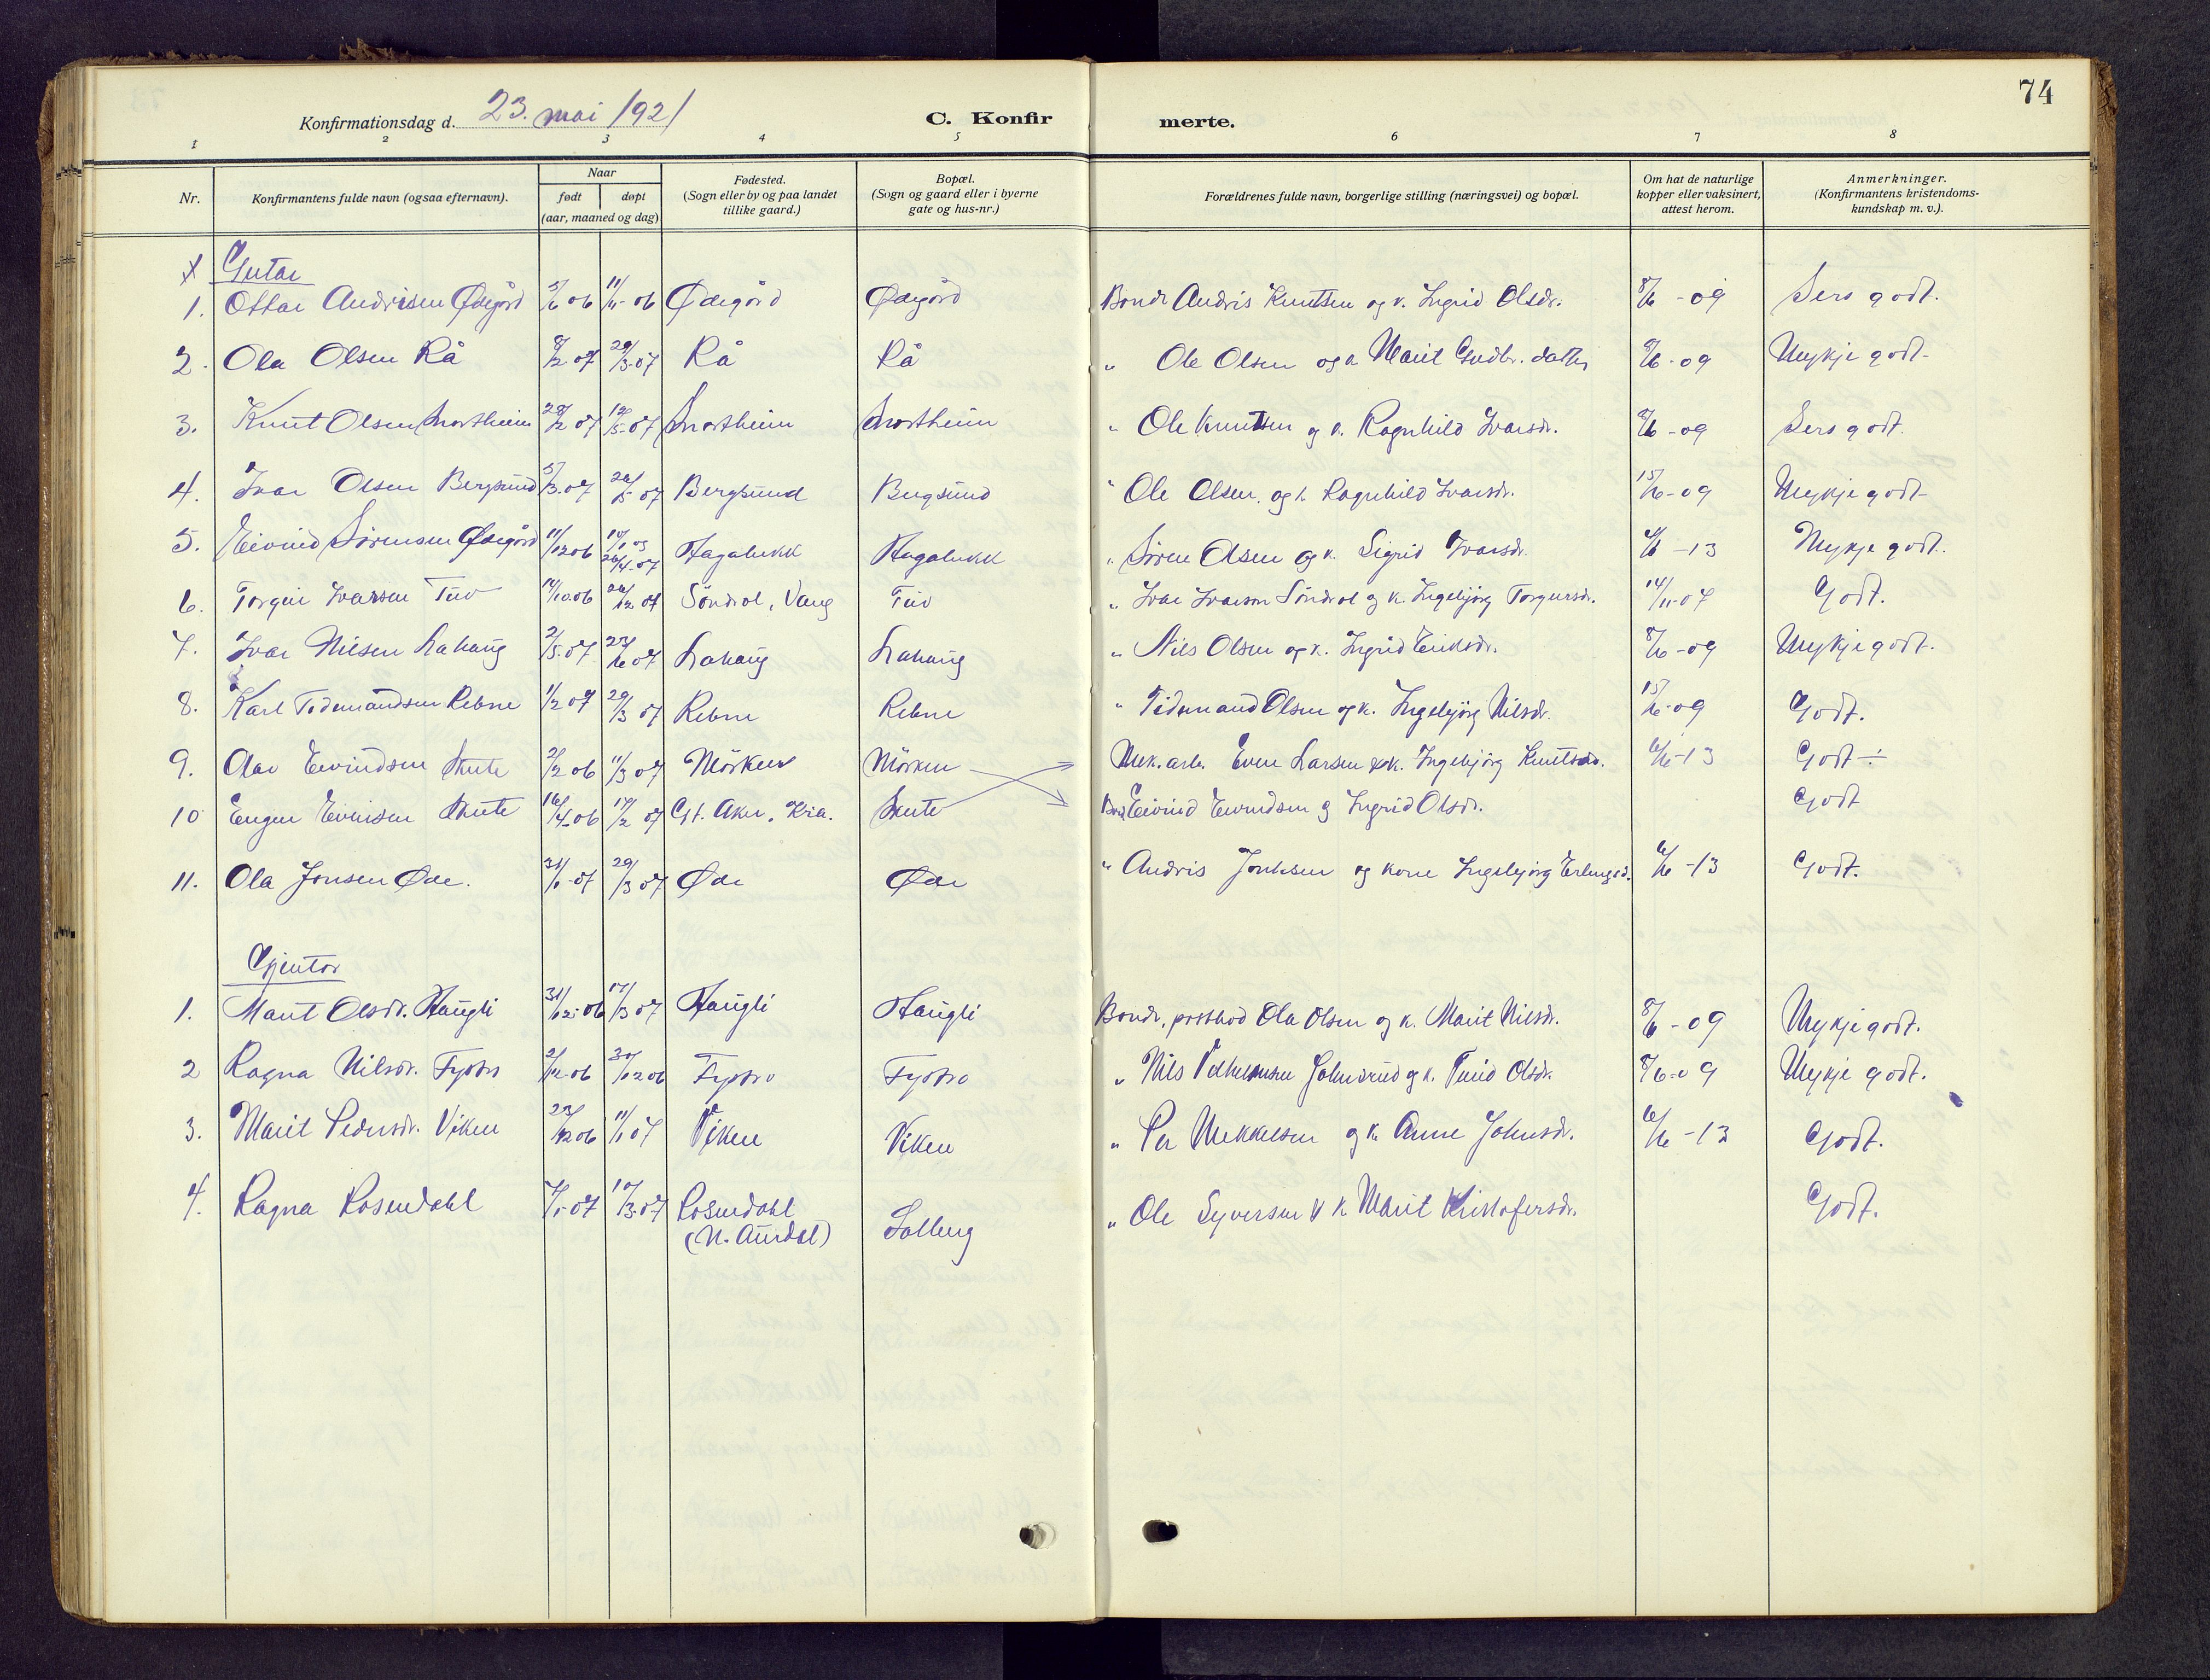 74
Konfirmationsdag d. 23. mai 1921
C. Konfirmerte.
1 2 3 4 5 6 7 8
Nr.
Konfirmantens fulde navn (ogsaa efternavn).
Naar
født døpt
(aar, maaned og dag)
Fødested.
(Sogn eller by og paa landet
tillike gaard.)
Bopæl.
(Sogn og gaard eller i byerne
gate og hus-nr.)
Forældrenes fulde navn, borgerlige stilling (næringsvei) og bopæl.
Om hat de naturlige
kopper eller vaksinert,
attest herom.
Anmerkninger.
(Konfirmantens kristendoms-
kundskap m. v.).
Gutar
1. Ottar Andrisen Ødegård 5/6 06 11/11-06 Ødegård Ødegård Bonde Andris Knutsen og k. Ingrid Olsdr. 8/6 - 09 Sers godt.
2. Ola Olsen Rå 8/2 07 29/3-07 Rå Rå " Ole Olsen og k. Marit Gudbr. datter 8/6 - 09 Mykje godt.
3. Knut Olsen 28/2 07 12/5-07 " Ole Knutsen og k. Ragnhild Ivarsdr. 8/6 - 09 Sers godt.
4. Ivar Olsen Bergsund 5/3-07 26/5 07 Bergsund Bergsund " Ole Olsen og k. Ragnhild Ivarsdr. 15/6-09 Mykje godt
5. Eivind Sörensen Ødegård 11/12 06 Hagalykk Hagalykk " Sören Olsen og k. Sigrid Ivarsdr. -13 Mykje godt.
6. Torgeir Ivarsen Tuv 14/10 06 26/12 07 Söndrol, Vang Tuv " Ivar Ivarson Söndrol og k. Ingebjörg Torgersdr. 14/11-07 Godt.
7. Ivar Nilsen Lahaug 2/5-07 23/6 07 Lahaug Lahaug " Nils Olsen og k. Ingrid Eriksdr. 8/6-09 Mykje godt.
8. Karl Tidemandsen Rebne 1/2 07 29/3 07 Rebne Rebne " Tidemand Olsen og k. Ingebjörg Nilsdr. 15/6-09 Godt.
9. Olav Eivindsen Skute 2/2 06 11/3 07 Mörken Mörken Mek. arb. Even Larsen og k. Ingebjörg Knutsdr. 6/6-13 Godt ÷
10 Eugen Evensen Skute 16/4-06 17/2 07 Gt. Aker, Kra. Skute Eivind Eivindsen og Ingrid Olsdr. Godt
11. Ola Jonsen Øde. 31/1-07 29/3 07 Øde Øde " Andris Jonsen og kone Ingebjörg Erlingsd. 6/6 -13 Godt.
Gjentor
1. Marit Olsdr. Haugli 31/12-06 17/3 07 Haugli Haugli Bonde, postbod Ola Olsen og k. Marit Nilsdr. 8/6 - 09 Mykje godt.
2 Ragna Nilsdr. 2/12-06 30/12 06 " Nils og k. Turid Olsdr. 8/6-09 Mykje godt.
3. Marit Pedersdr. Viken 23/12 06 11/1 07 Viken Viken " Per Mikkelsen og k. Anne Johnsdr. 6/6 -13 Godt.
4. Ragna Rosendahl 4/1-07 10/3-07 Rosendahl
(N. Aurdal) Solberg " Ole Syversen & k. Marit Kristofersdr. Godt.